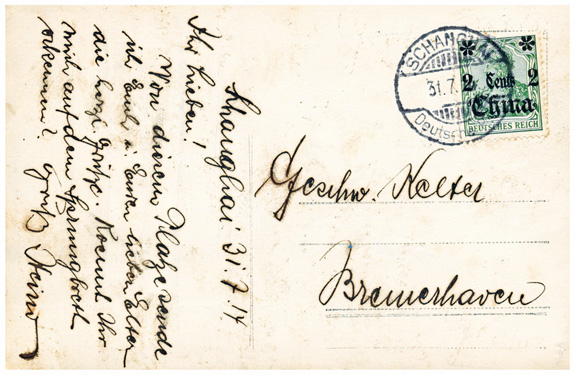 Shanghai 31.7.14
Ihr Lieben!
Von diesem Platze sende
ich Euch u. Euren lieben Eltern
die herzl. Grüße. Koennt Ihr
mich auf dem Sprungbrett
erkennen? Gruß Heini
SCHANGHAI
31.7.
Deutsche
2 Cents 2
China
DEUTSCHES REICH
Geschw. Kelter
Bremerhaven